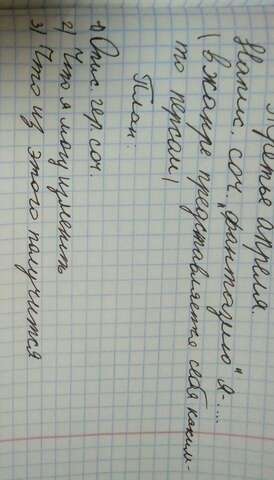 Третье апреля.
Напис. соч. "фантазию" Я-....
(в жанре представляете себя каким-
то персан)
План:
1) Опис. гер. соч.
2) Что я могу изменить
3) Что из этого получится